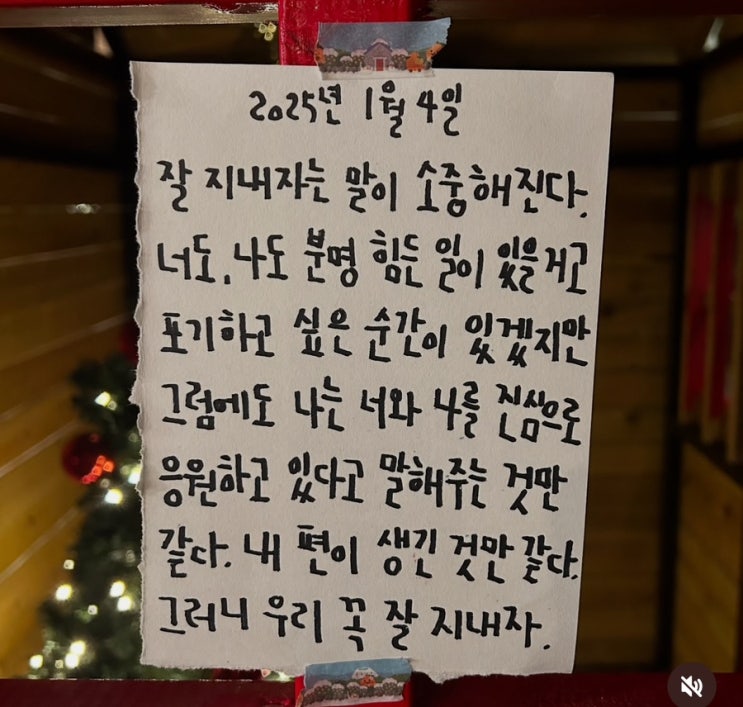 2025년 1월 4일
잘 지내자는 말이 소중해진다.
너도, 나도 분명 힘든 일이 있을거고
포기하고 싶은 순간이 있겠지만
그럼에도 나는 너와 나를 진심으로
응원하고 있다고 말해주는 것만
같다. 내 편이 생긴 것만 같다.
그러니 우리 꼭 잘 지내자.